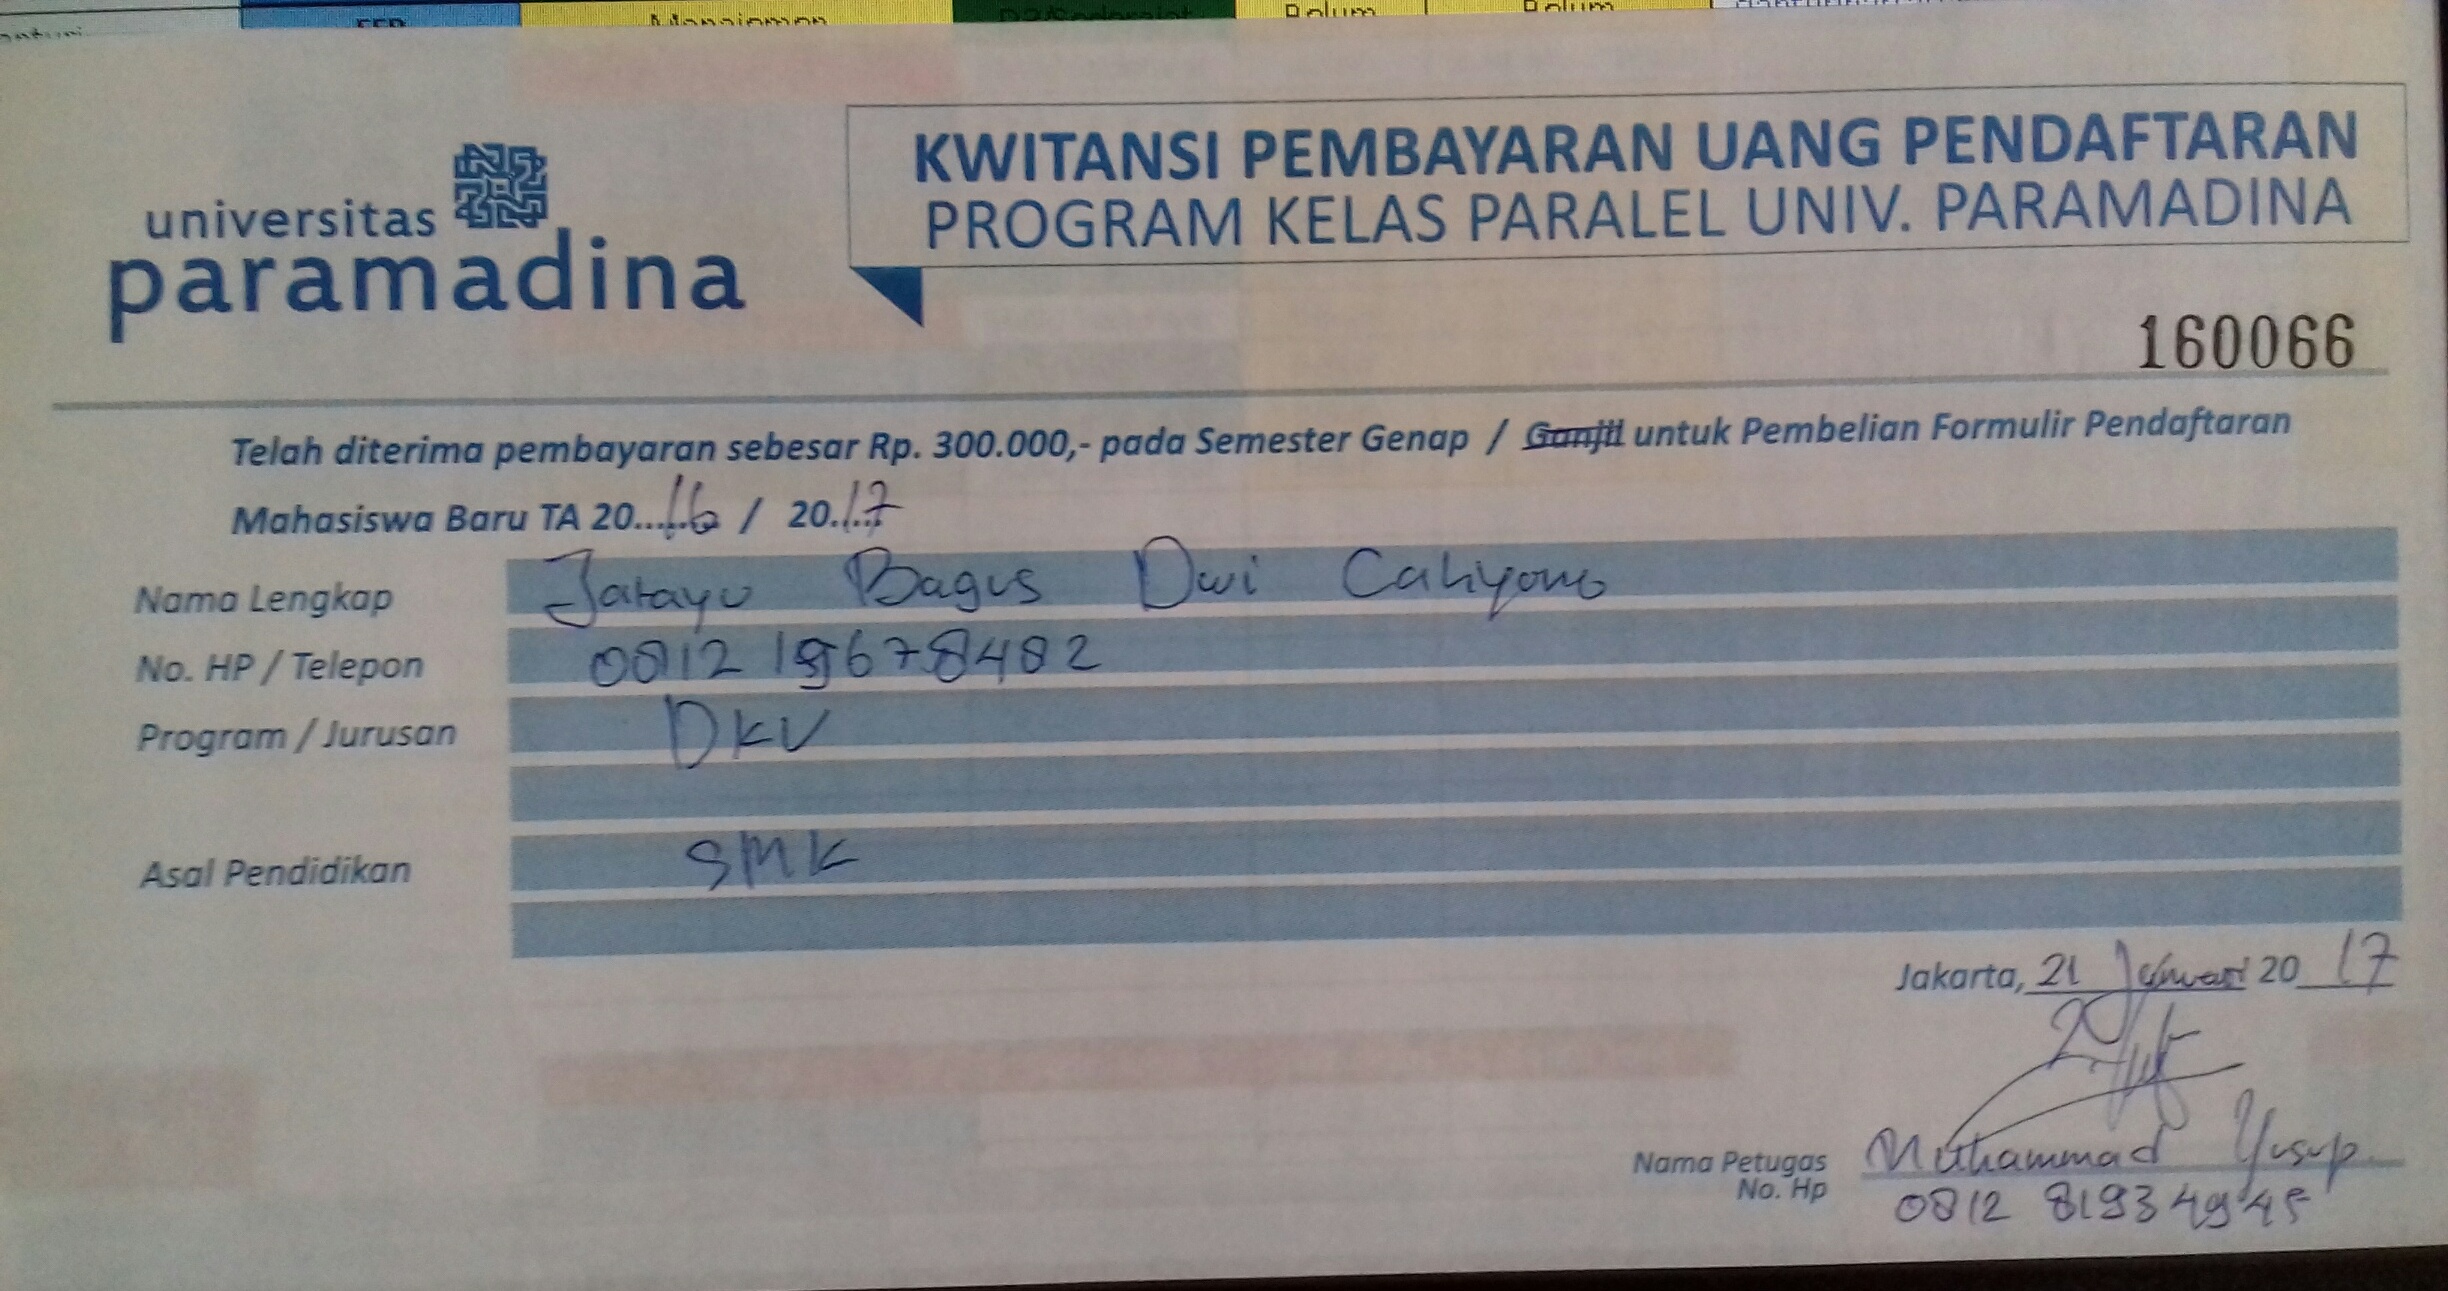 Manajemen
Belum
Belum
universitas
paramadina
KWITANSI PEMBAYARAN UANG PENDAFTARAN
PROGRAM KELAS PARALEL UNIV. PARAMADINA
160066
Telah diterima pembayaran sebesar Rp. 300.000,- pada Semester Genap / Ganjil untuk Pembelian Formulir Pendaftaran
Mahasiswa Baru TA 20....16 / 20.17
Nama Lengkap Jatayu Bagus Dwi Cahyono
No. HP / Telepon 0812 19678482
Program / Jurusan DKV
Asal Pendidikan SMK
Jakarta, 21 Januari 20 17
Nama Petugas Muhammad Yusup
No. Hp 0812 81934945